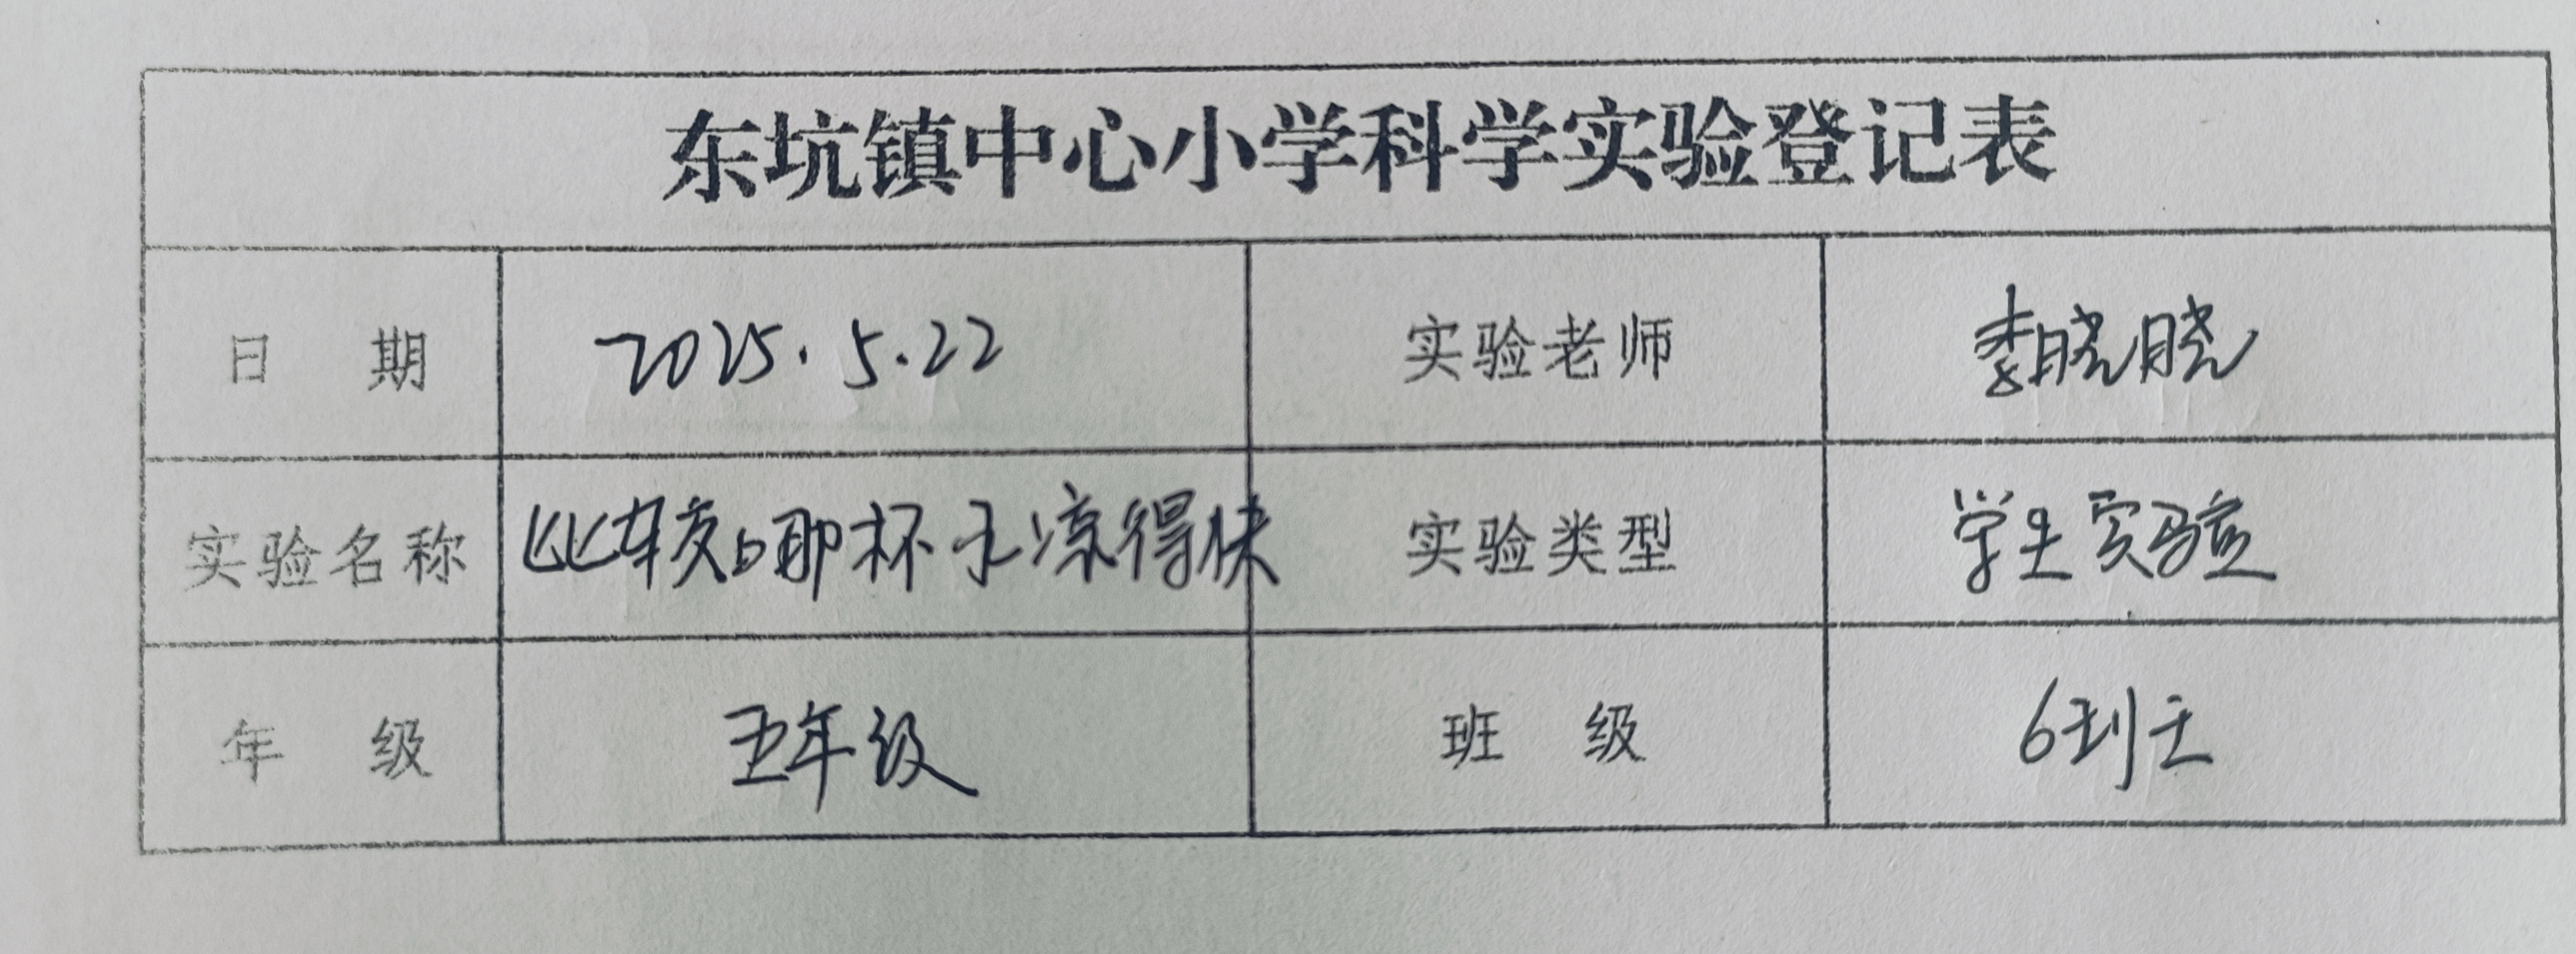 东坑镇中心小学科学实验登记表
日 期 2025.5.22 实验老师 李晓晓
实验名称 比较哪杯水凉得快 实验类型 学生实验
年 级 五年级 班 级 6班